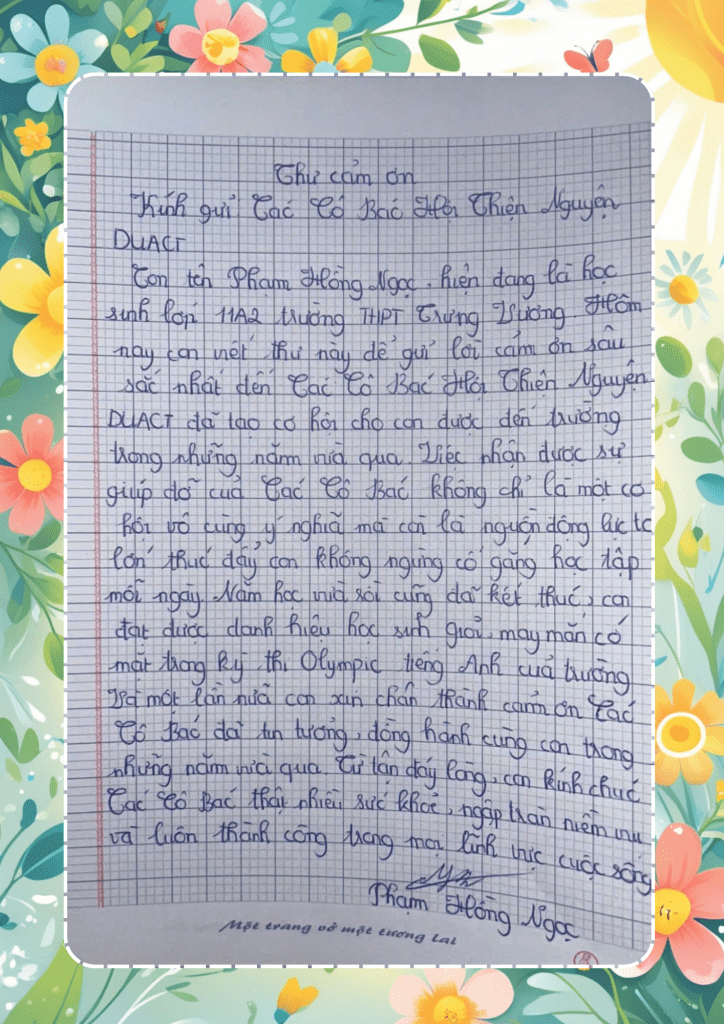 Thư cảm ơn
Kính gửi Các Cô Bác Hội Thiện Nguyện
DUACT
Con tên Phạm Hồng Ngọc, hiện đang là học
sinh lớp 11A2 trường THPT Trưng Vương. Hôm
nay con viết thư này để gửi lời cảm ơn sâu
sắc nhất đến Các Cô Bác Hội Thiện Nguyện
DUACT đã tạo cơ hội cho con được đến trường
trong những năm vừa qua. Việc nhận được sự
giúp đỡ của Các Cô Bác không chỉ là một cơ
hội vô cùng ý nghĩa mà còn là nguồn động lực to
lớn thúc đẩy con không ngừng cố gắng học tập
mỗi ngày. Năm học vừa rồi cũng đã kết thúc, con
đạt được danh hiệu học sinh giỏi, may mắn có
mặt trong kỳ thi Olympic tiếng Anh của trường
Và một lần nữa con xin chân thành cảm ơn Các
Cô Bác đã tin tưởng, đồng hành cùng con trong
những năm vừa qua. Từ tận đáy lòng, con kính chúc
Các Cô Bác thật nhiều sức khoẻ, ngập tràn niềm vui
và luôn thành công trong mọi lĩnh vực cuộc sống
Phạm Hồng Ngọc
Một trang vở một tương lai